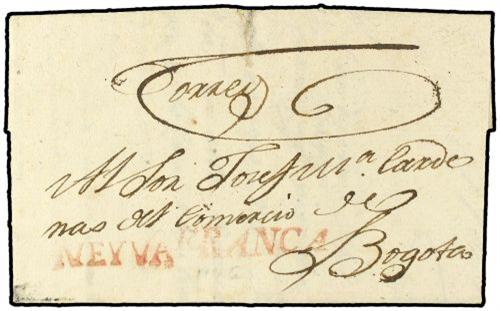 Correo
Al Sor Josef Ma. Carde
nas del Comercio de
Bogota
NEYVA FRANCA